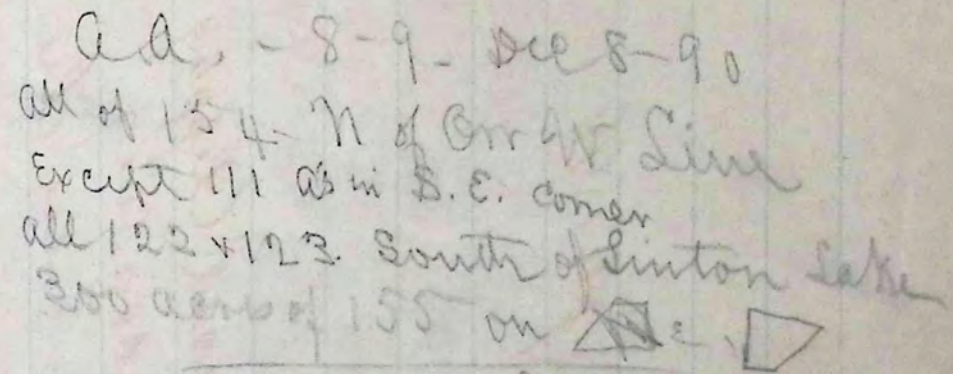 A.A. - 8-9. Dec 8-90
all of 154- N of Orr W Line
Except 111 as in S.E. corner
all 122 & 123. South of Linton Lake
300 acres of 155 on